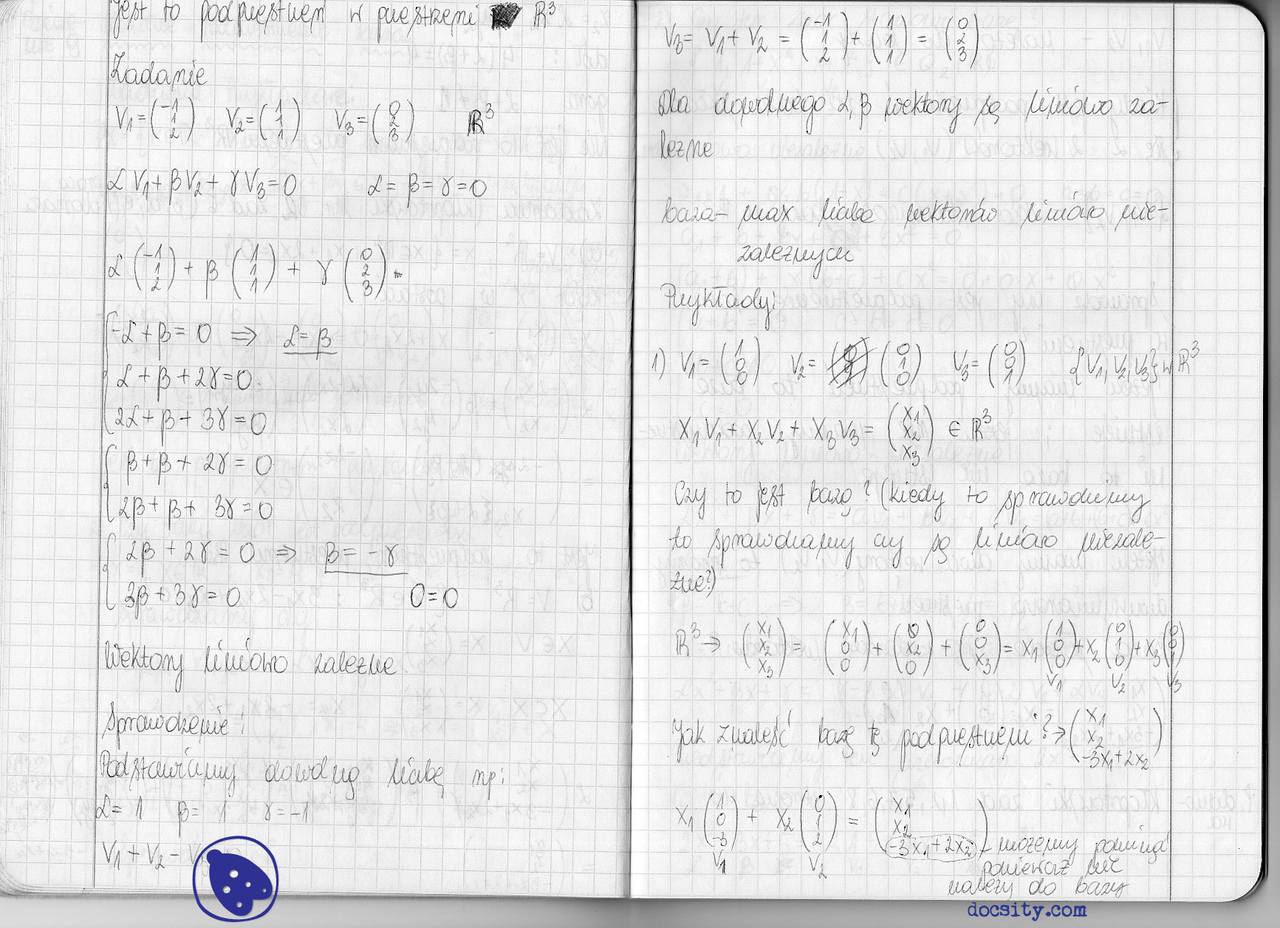 jest to podprzestrzeń w przestrzeni R³
Zadanie
V₁ = (-1 1 2) V₂ = (1 1 1) V₃ = (0 2 3) R³
αV₁ + βV₂ + γV₃ = 0 α = β = γ = 0
α (-1 1 2) + β (1 1 1) + γ (0 2 3) =
-α + β = 0 ⇒ α = β
α + β + 2γ = 0
2α + β + 3γ = 0
β + β + 2γ = 0
2β + β + 3γ = 0
2β + 2γ = 0 ⇒ β = -γ
3β + 3γ = 0 0 = 0
Wektory liniowo zależne
Sprawdzenie:
Podstawiamy dowolną liczbę np:
α = 1 β = 1 γ = -1
V₁ + V₂ -
V₃ = V₁ + V₂ = (-1 1 2) + (1 1 1) = (0 2 3)
Dla dowolnego α, β wektory są liniowo za-
leżne
baza - max liczba wektorów liniowo nie-
zależnych
Przykłady:
1) V₁ = (1 0 0) V₂ = (0 1 0) V₃ = (0 0 1) {V₁, V₂, V₃} w R³
X₁V₁ + X₂V₂ + X₃V₃ = (x₁ x₂ x₃) ∈ R³
Czy to jest bazą? (kiedy to sprawdzimy
to sprawdzamy czy są liniowo niezale-
żne?)
R³ → (x₁ x₂ x₃) = (x₁ 0 0) + (0 x₂ 0) + (0 0 x₃) = x₁ (1 0 0) + x₂ (0 1 0) + x₃ (0 0 1)
V₁ V₂ V₃
Jak znaleść bazę tę podprzestrzeni? → (x₁ x₂ -3x₁+2x₂)
X₁ (1 0 -3) + X₂ (0 1 2) = (x₁ x₂ -3x₁+2x₂) - możemy pominąć
V₁ V₂ ponieważ nie
należy do bazy
docsity.com